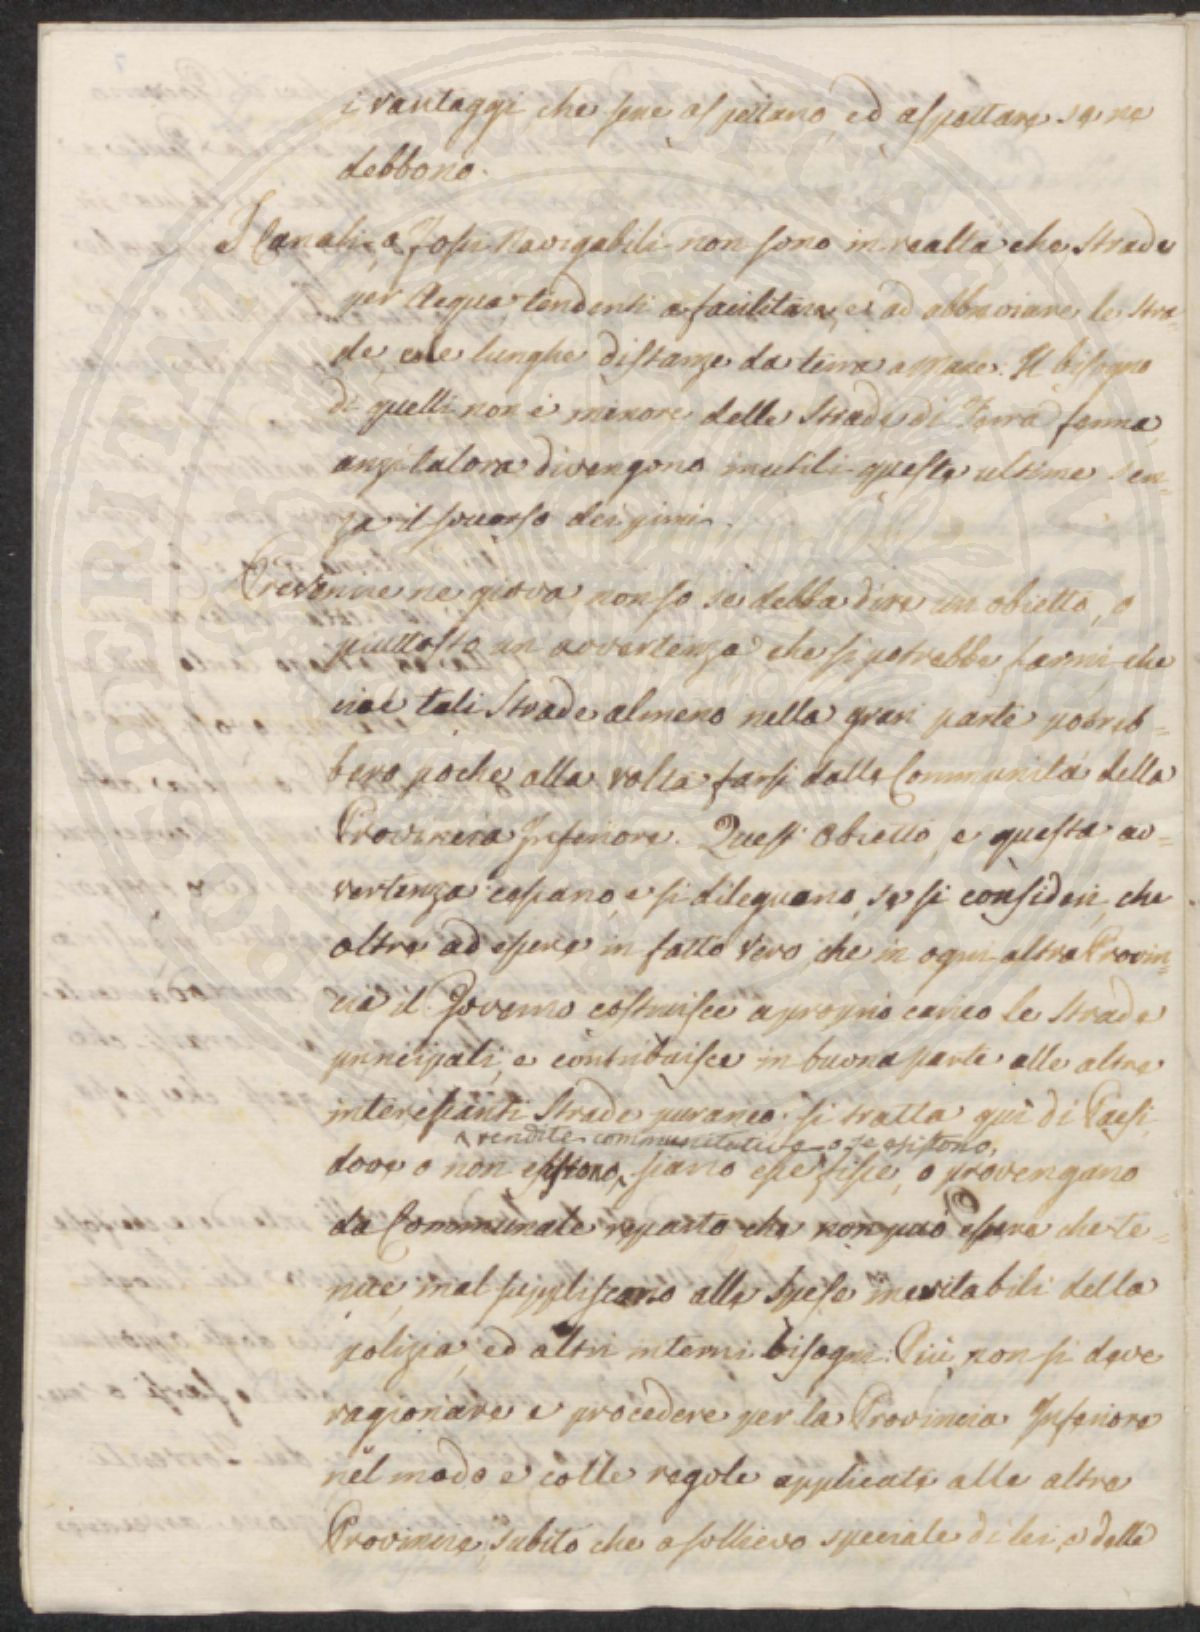 i vantaggi che sene aspettano, ed aspettare se ne
debbono.
I Canali, o Fossi Navigabili non sono in realtà che Strade
per Acqua tendenti a facilitare, e ad abbreviare le Stra-
de, e le lunghe distanze da terra a Mare. Il bisogno
di quelli non è minore delle Strade di Terra ferma,
anzi talora divengono inutili queste ultime sen-
za il soccorso dei primi.
Prevenire ne giova non so se debba dire un obietto, o
piuttosto un avvertenza, che si potrebbe farmi che
cioè tali Strade almeno nella gran parte potreb-
bero poche alla volta farsi dalle Communità della
Provincia Inferiore. Quest Obietto, e questa av-
vertenza cessano, e si dileguano, se si consideri, che
oltre ad essere in fatto vero, che in ogni altra Provin-
cia il Governo costruisce a proprio carico le Strade
principali, e contribuisce in buona parte alle altre
interessanti Strade puranco; si tratta qui di Paesi,
rendite communitative, o se esistono,
dove o non esistono, siano esse fisse, o provengano
da Communale reparto che non può essere che te-
nue, mal suppliscono alle Spese inevitabili della
polizia, ed altri interni bisogni. Più, non si deve
ragionare e procedere per la Provincia Inferiore
nel modo e colle regole applicate alle altre
Provincie, subito che a sollievo speciale di lei, e delle